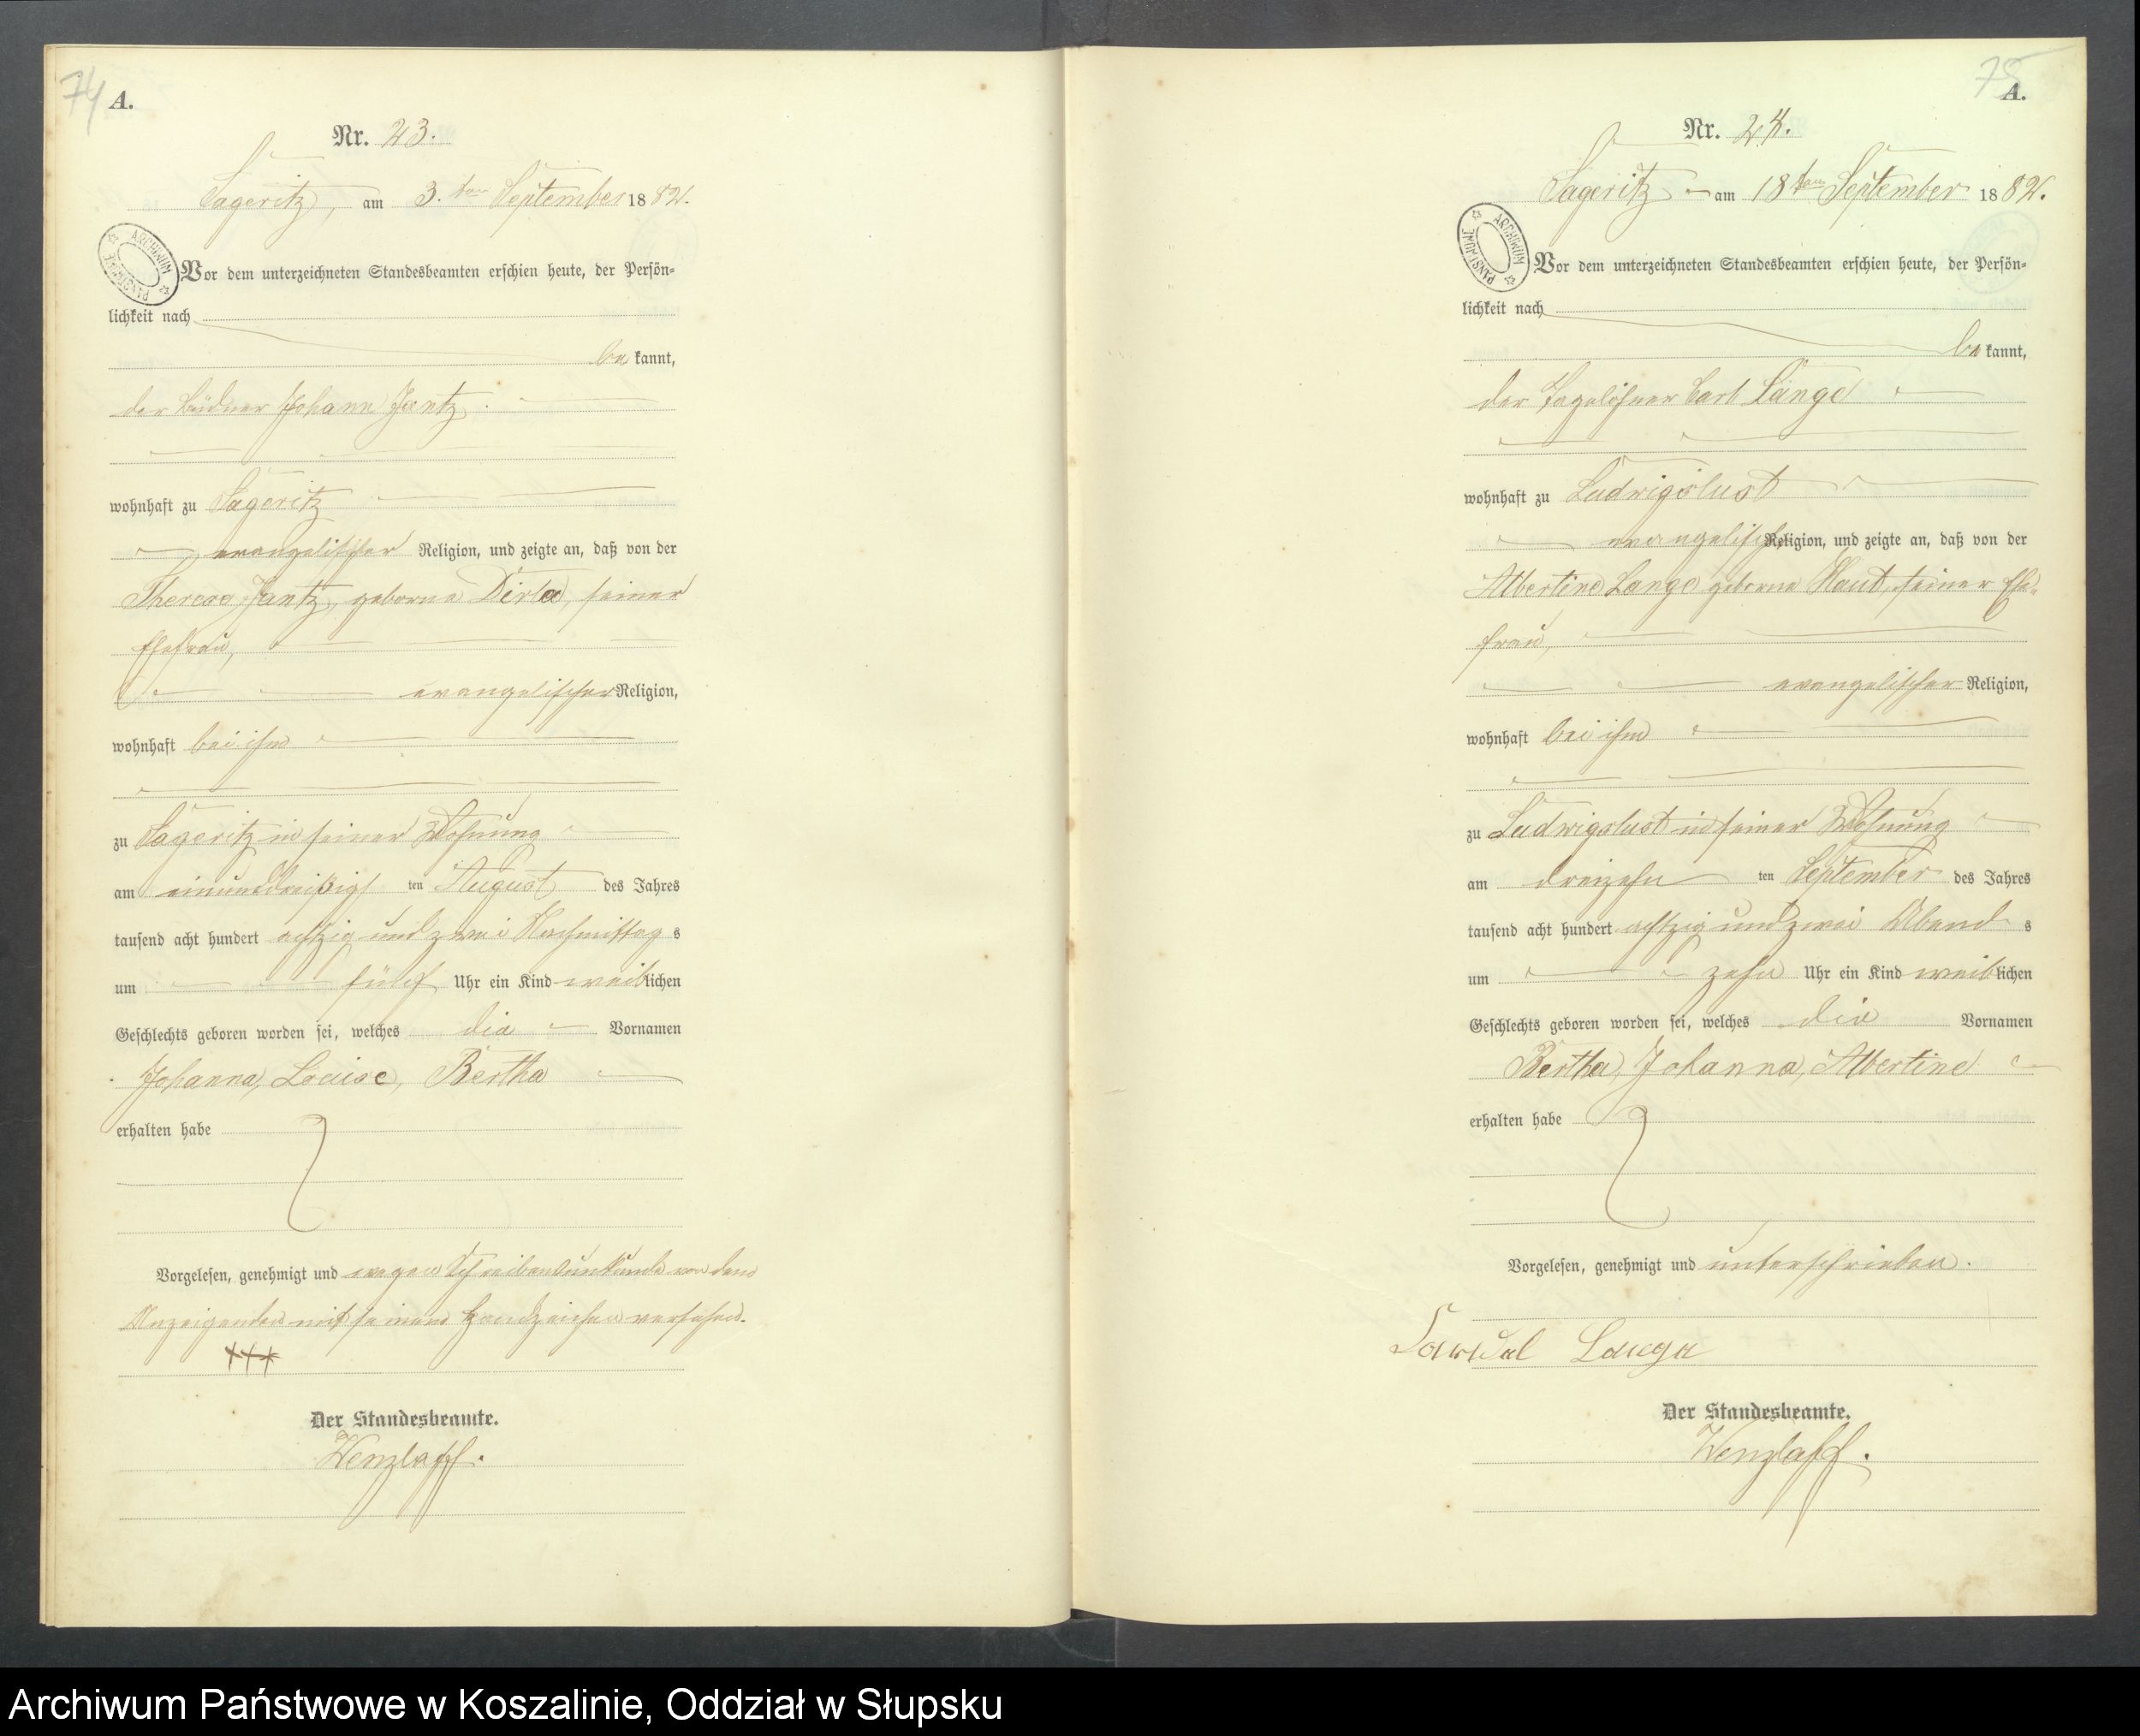 74
A.
Nr. 23.
Sageritz, am 3. ten September 1882.
ARCHIWUM PAŃSTWOWE
Vor dem unterzeichneten Standesbeamten erschien heute, der Persön-
lichkeit nach
be kannt,
der Büdner Johann Jantz
wohnhaft zu Sageritz
evangelischer Religion, und zeigte an, daß von der
Therese Jantz, geborne seiner
Ehefrau,
evangelischer Religion,
wohnhaft bei ihm
zu Sageritz in seiner Wohnung
am einunddreißigs ten August des Jahres
tausend acht hundert achtzig und zwei Nachmittag s
um fünf Uhr ein Kind weiblichen
Geschlechts geboren worden sei, welches die Vornamen
Johanna, Louise, Bertha
erhalten habe
Vorgelesen, genehmigt und wegen Schreibensunkunde von dem
Anzeigenden mit seinem Handzeichen versehen.
+++
Der Standesbeamte.
Wenzlaff.
75
A.
Nr. 24.
Sageritz am 18 ten September 1882.
ARCHIWUM PAŃSTWOWE
Vor dem unterzeichneten Standesbeamten erschien heute, der Persön-
lichkeit nach
be kannt,
der Tagelöhner Carl Lange
wohnhaft zu Ludwigslust
evangelischer Religion, und zeigte an, daß von der
Albertine Lange geborne seiner Ehe-
frau,
evangelischer Religion,
wohnhaft bei ihm
zu Ludwigslust in seiner Wohnung
am dreizehn ten September des Jahres
tausend acht hundert achtzig und zwei Abend s
um zehn Uhr ein Kind weiblichen
Geschlechts geboren worden sei, welches die Vornamen
Bertha, Johanna, Albertine
erhalten habe
Vorgelesen, genehmigt und unterschrieben.
Lange
Der Standesbeamte.
Wenzlaff.
Archiwum Państwowe w Koszalinie, Oddział w Słupsku